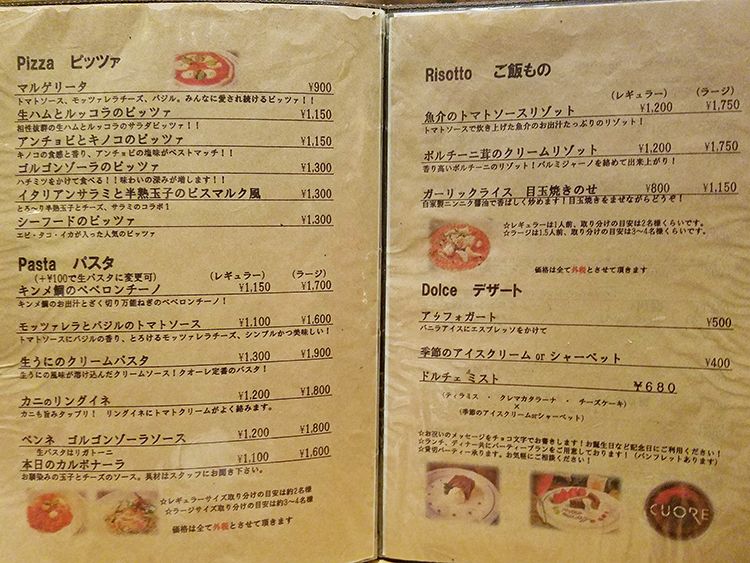 Pizza ピッツァ
マルゲリータ ¥900
トマトソース、モッツァレラチーズ、バジル。みんなに愛され続けるピッツァ！！
生ハムとルッコラのピッツァ ¥1,150
相性抜群の生ハムとルッコラのサラダピッツァ！！
アンチョビとキノコのピッツァ ¥1,150
キノコの食感と香り、アンチョビの塩味がベストマッチ！！
ゴルゴンゾーラのピッツァ ¥1,300
ハチミツをかけて食べる！！味わいの深みが増します！！
イタリアンサラミと半熟玉子のビスマルク風 ¥1,300
とろ～り半熟玉子とチーズ、サラミのコラボ！
シーフードのピッツァ ¥1,300
エビ・タコ・イカが入った人気のピッツァ
Pasta パスタ
(+¥100で生パスタに変更可) (レギュラー) (ラージ)
キンメ鯛のペペロンチーノ ¥1,150 ¥1,700
キンメ鯛のお出汁とざく切り万能ねぎのペペロンチーノ！
モッツァレラとバジルのトマトソース ¥1,100 ¥1,600
トマトソースにバジルの香り、とろけるモッツァレラチーズ、シンプルかつ美味しい！
生うにのクリームパスタ ¥1,300 ¥1,900
生うにの風味が溶け込んだクリームソース！クオーレ定番のパスタ！
カニのリングイネ ¥1,200 ¥1,800
カニも旨みタップリ！ リングイネにトマトクリームがよく絡みます。
ペンネ ゴルゴンゾーラソース ¥1,200 ¥1,800
生パスタはリガトーニ
本日のカルボナーラ ¥1,100 ¥1,600
お馴染みの玉子とチーズのソース。具材はスタッフにお聞き下さい。
☆レギュラーサイズ取り分けの目安は約2名様
☆ラージサイズ取り分けの目安は約3～4名様
価格は全て外税とさせて頂きます
Risotto ご飯もの
(レギュラー) (ラージ)
魚介のトマトソースリゾット ¥1,200 ¥1,750
トマトソースで炊き上げた魚介のお出汁たっぷりのリゾット！
ポルチーニ茸のクリームリゾット ¥1,200 ¥1,750
香り高いポルチーニのリゾット！パルミジャーノを絡めて出来上がり！
ガーリックライス 目玉焼きのせ ¥800 ¥1,150
自家製ニンニク醤油で香ばしく炒めます！目玉焼きをまぜながらどうぞ！
☆レギュラーは1人前、取り分けの目安は2名様くらいです。
☆ラージは1.5人前、取り分けの目安は3～4名様くらいです。
価格は全て外税とさせて頂きます
Dolce デザート
アッフォガート ¥500
バニラアイスにエスプレッソをかけて
季節のアイスクリーム or シャーベット ¥400
ドルチェ ミスト ￥680
(ティラミス ・ クレマカタラーナ ・ チーズケーキ)
×
(季節のアイスクリームorシャーベット)
☆お祝いのメッセージをチョコ文字でお書きします！お誕生日など記念日にご利用ください！
☆ランチ、ディナー共にパーティープランをご用意しております！(パンフレットあります)
☆貸切パーティー承ります。お気軽にご相談ください！
CUORE